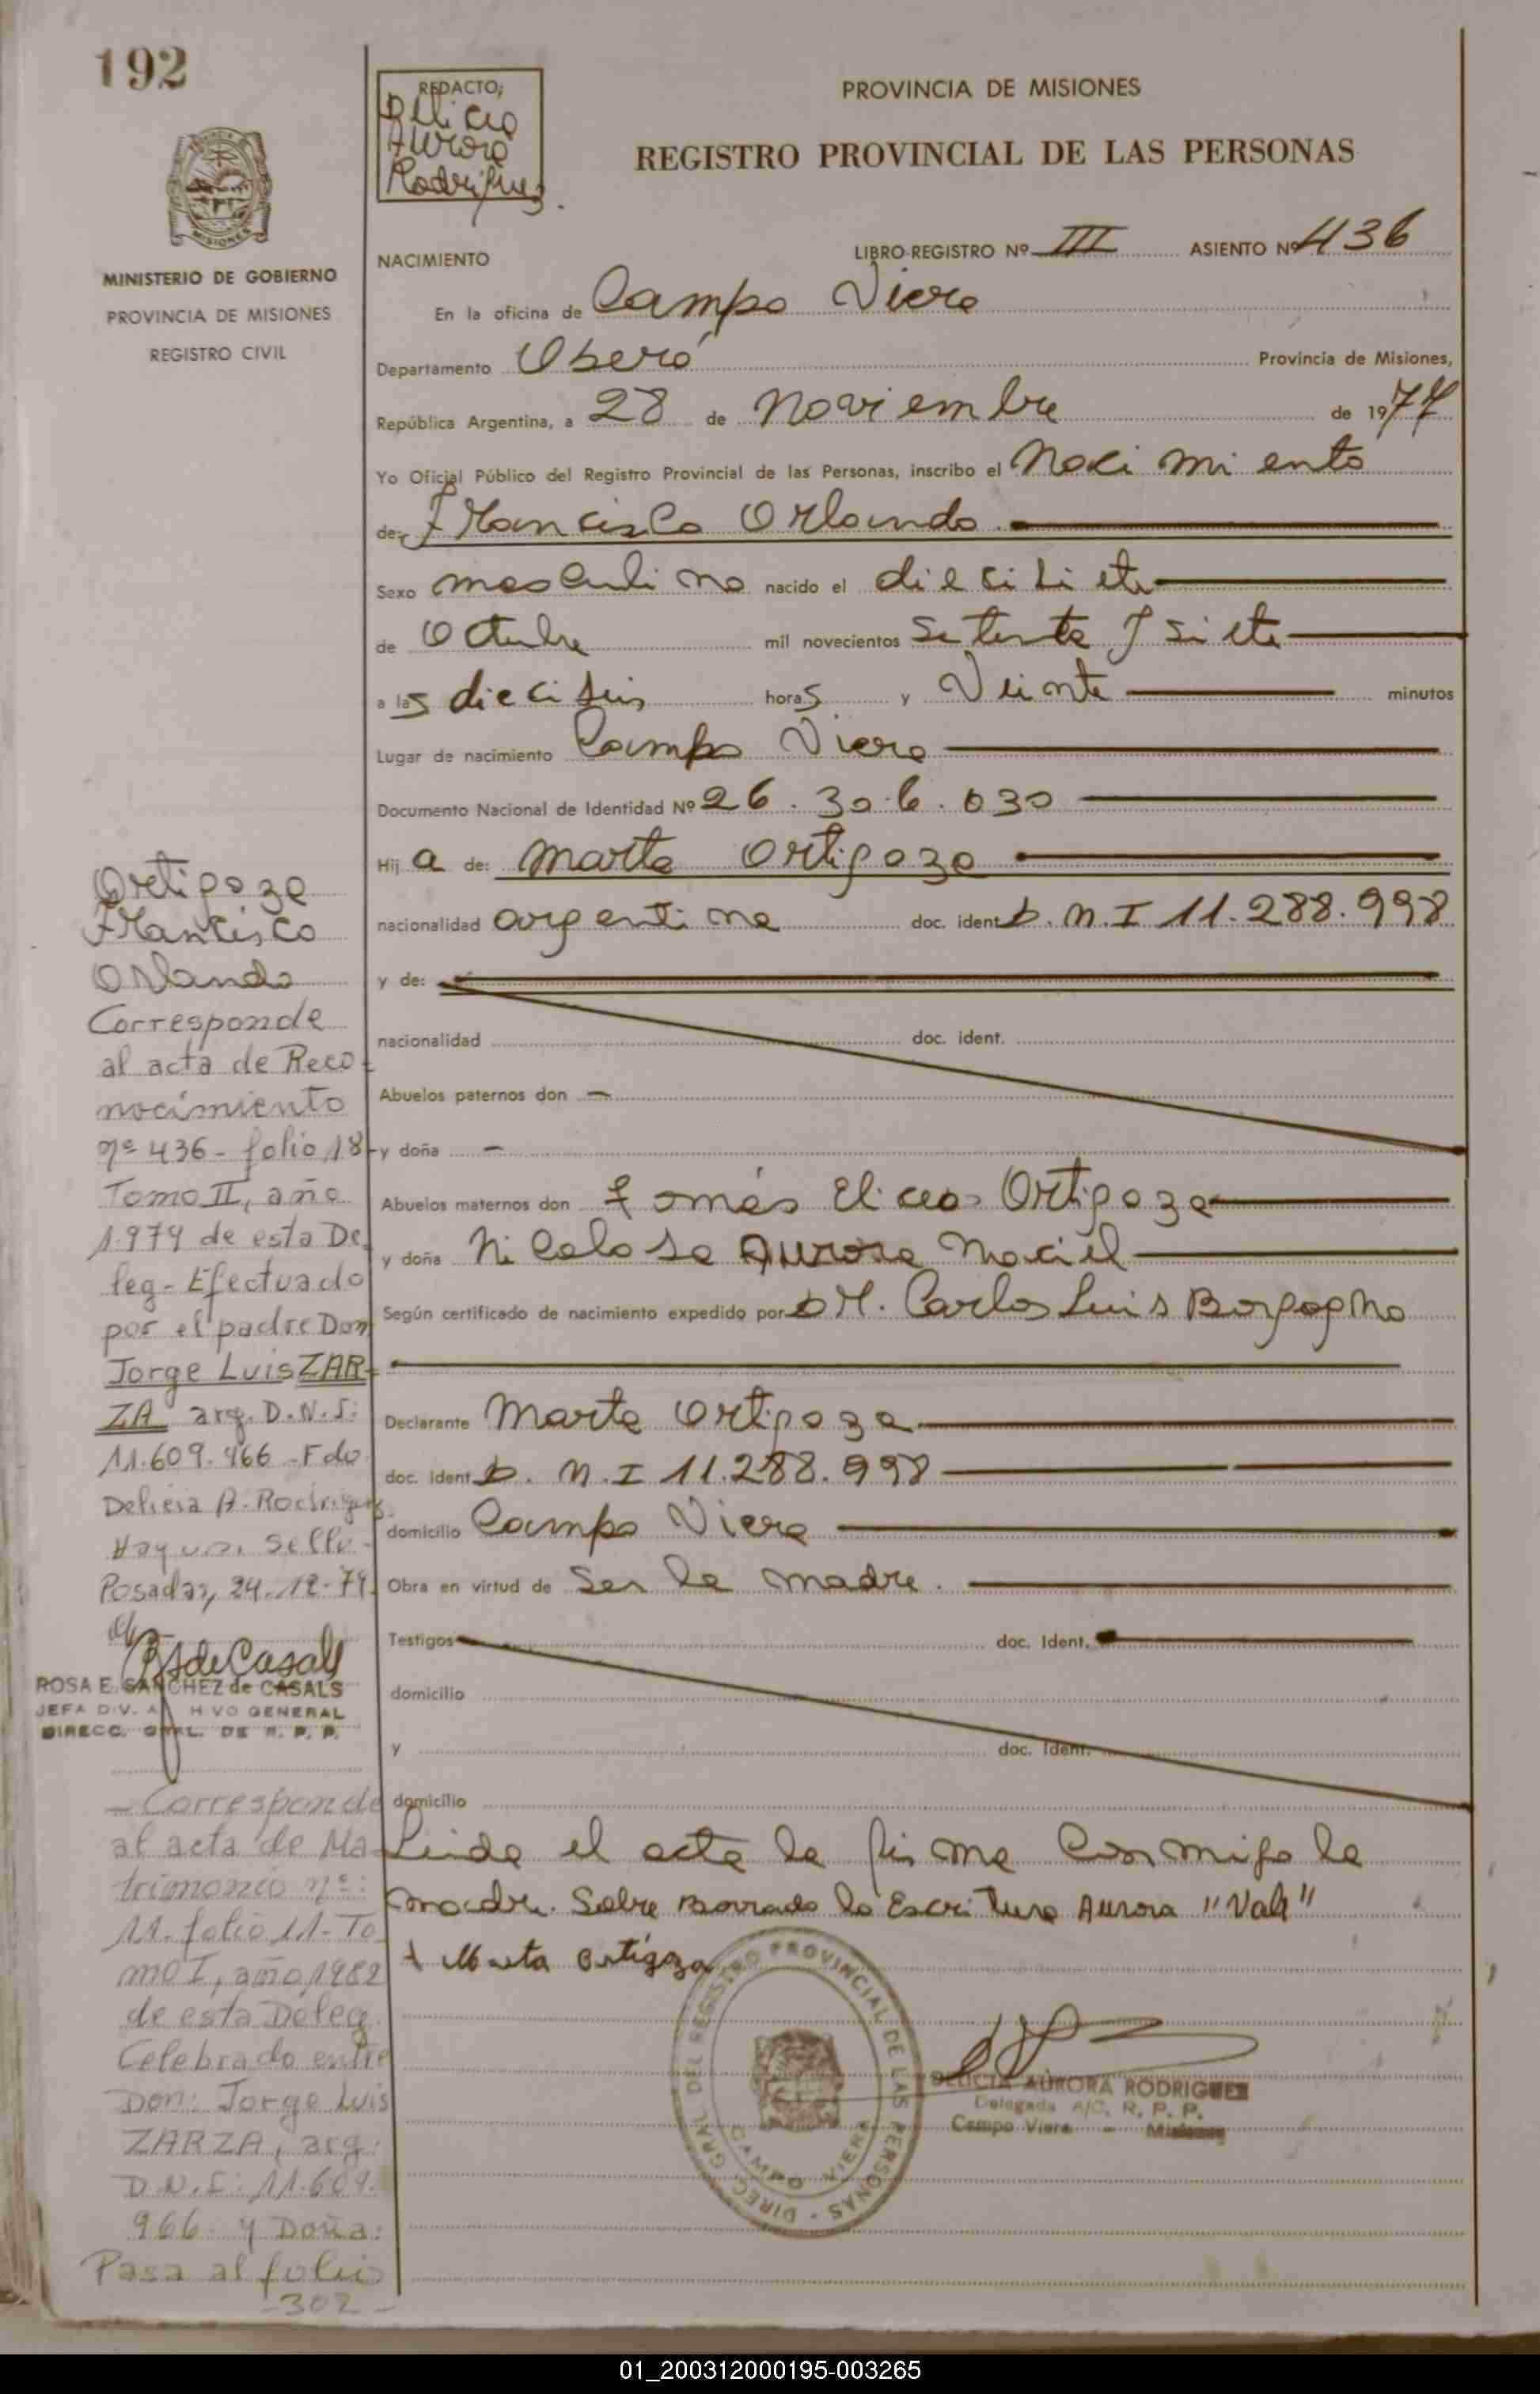 192
MINISTERIO DE GOBIERNO
PROVINCIA DE MISIONES
REGISTRO CIVIL
REDACTO;
Delicia
Aurora
Rodriguez.
PROVINCIA DE MISIONES
REGISTRO PROVINCIAL DE LAS PERSONAS
NACIMIENTO
LIBRO-REGISTRO Nº III ASIENTO Nº 436
En la oficina de Campo Viera
Departamento Oberá Provincia de Misiones,
República Argentina, a 28 de Noviembre de 1977
Yo Oficial Público del Registro Provincial de las Personas, inscribo el Naci mi ento
de: Francisco Orlando
Sexo masculino nacido el diecisiete
de Octubre mil novecientos Setenta y siete
a las dieciseis horas y Veinte minutos
Lugar de nacimiento Campo Viera
Documento Nacional de Identidad Nº 26.306.030
Hij a de: Marta Ortigoza
nacionalidad argentina doc. ident D.N.I 11.288.998
y de:
nacionalidad doc. ident.
Abuelos paternos don -
y doña -
Abuelos maternos don Tomás Eliceo Ortigoza
y doña Nicolasa Aurora Maciel
Según certificado de nacimiento expedido por DR. Carlos Luis Borgogno
Declarante Marta Ortigoza
doc. ident D.N.I 11.288.998
domicilio Campo Viera
Obra en virtud de Ser la madre.
Testigos doc. Ident.
domicilio
y doc. Ident.
domicilio
Leida el acta la firma conmigo la
madre. Sobre Borrado la Escritura Aurora "Vale"
+ Marta Ortigoza
DIREC. GRAL. DEL REGISTRO PROVINCIAL DE LAS PERSONAS
CAMPO VIERA
DELICIA AURORA RODRIGUEZ
Delegada A/C. R. P. P.
Campo Viera - Misiones
Ortigoza
Francisco
Orlando
Corresponde
al acta de Reco
nocimiento
nº 436 - folio 18
Tomo II, año
1.979 de esta De
leg - Efectuado
por el padre Don
Jorge Luis ZAR-
ZA arg. D.N.I:
11.609.966 - Fdo
Delicia A. Rodriguez
Hay un sello -
Posadas, 24-12-79
RSdeCasals
ROSA E. SANCHEZ de CASALS
JEFA DIV. ARCHIVO GENERAL
DIRECC. GRAL. DE R. P. P.
- Corresponde
al acta de Ma
trimonio nº:
11. folio 11- To
mo I, año 1982
de esta Deleg.
Celebrado entre
Don: Jorge Luis
ZARZA, arg:
D.N.I: 11.609.
966. y Doña:
Pasa al folio
-302-
01_200312000195-003265